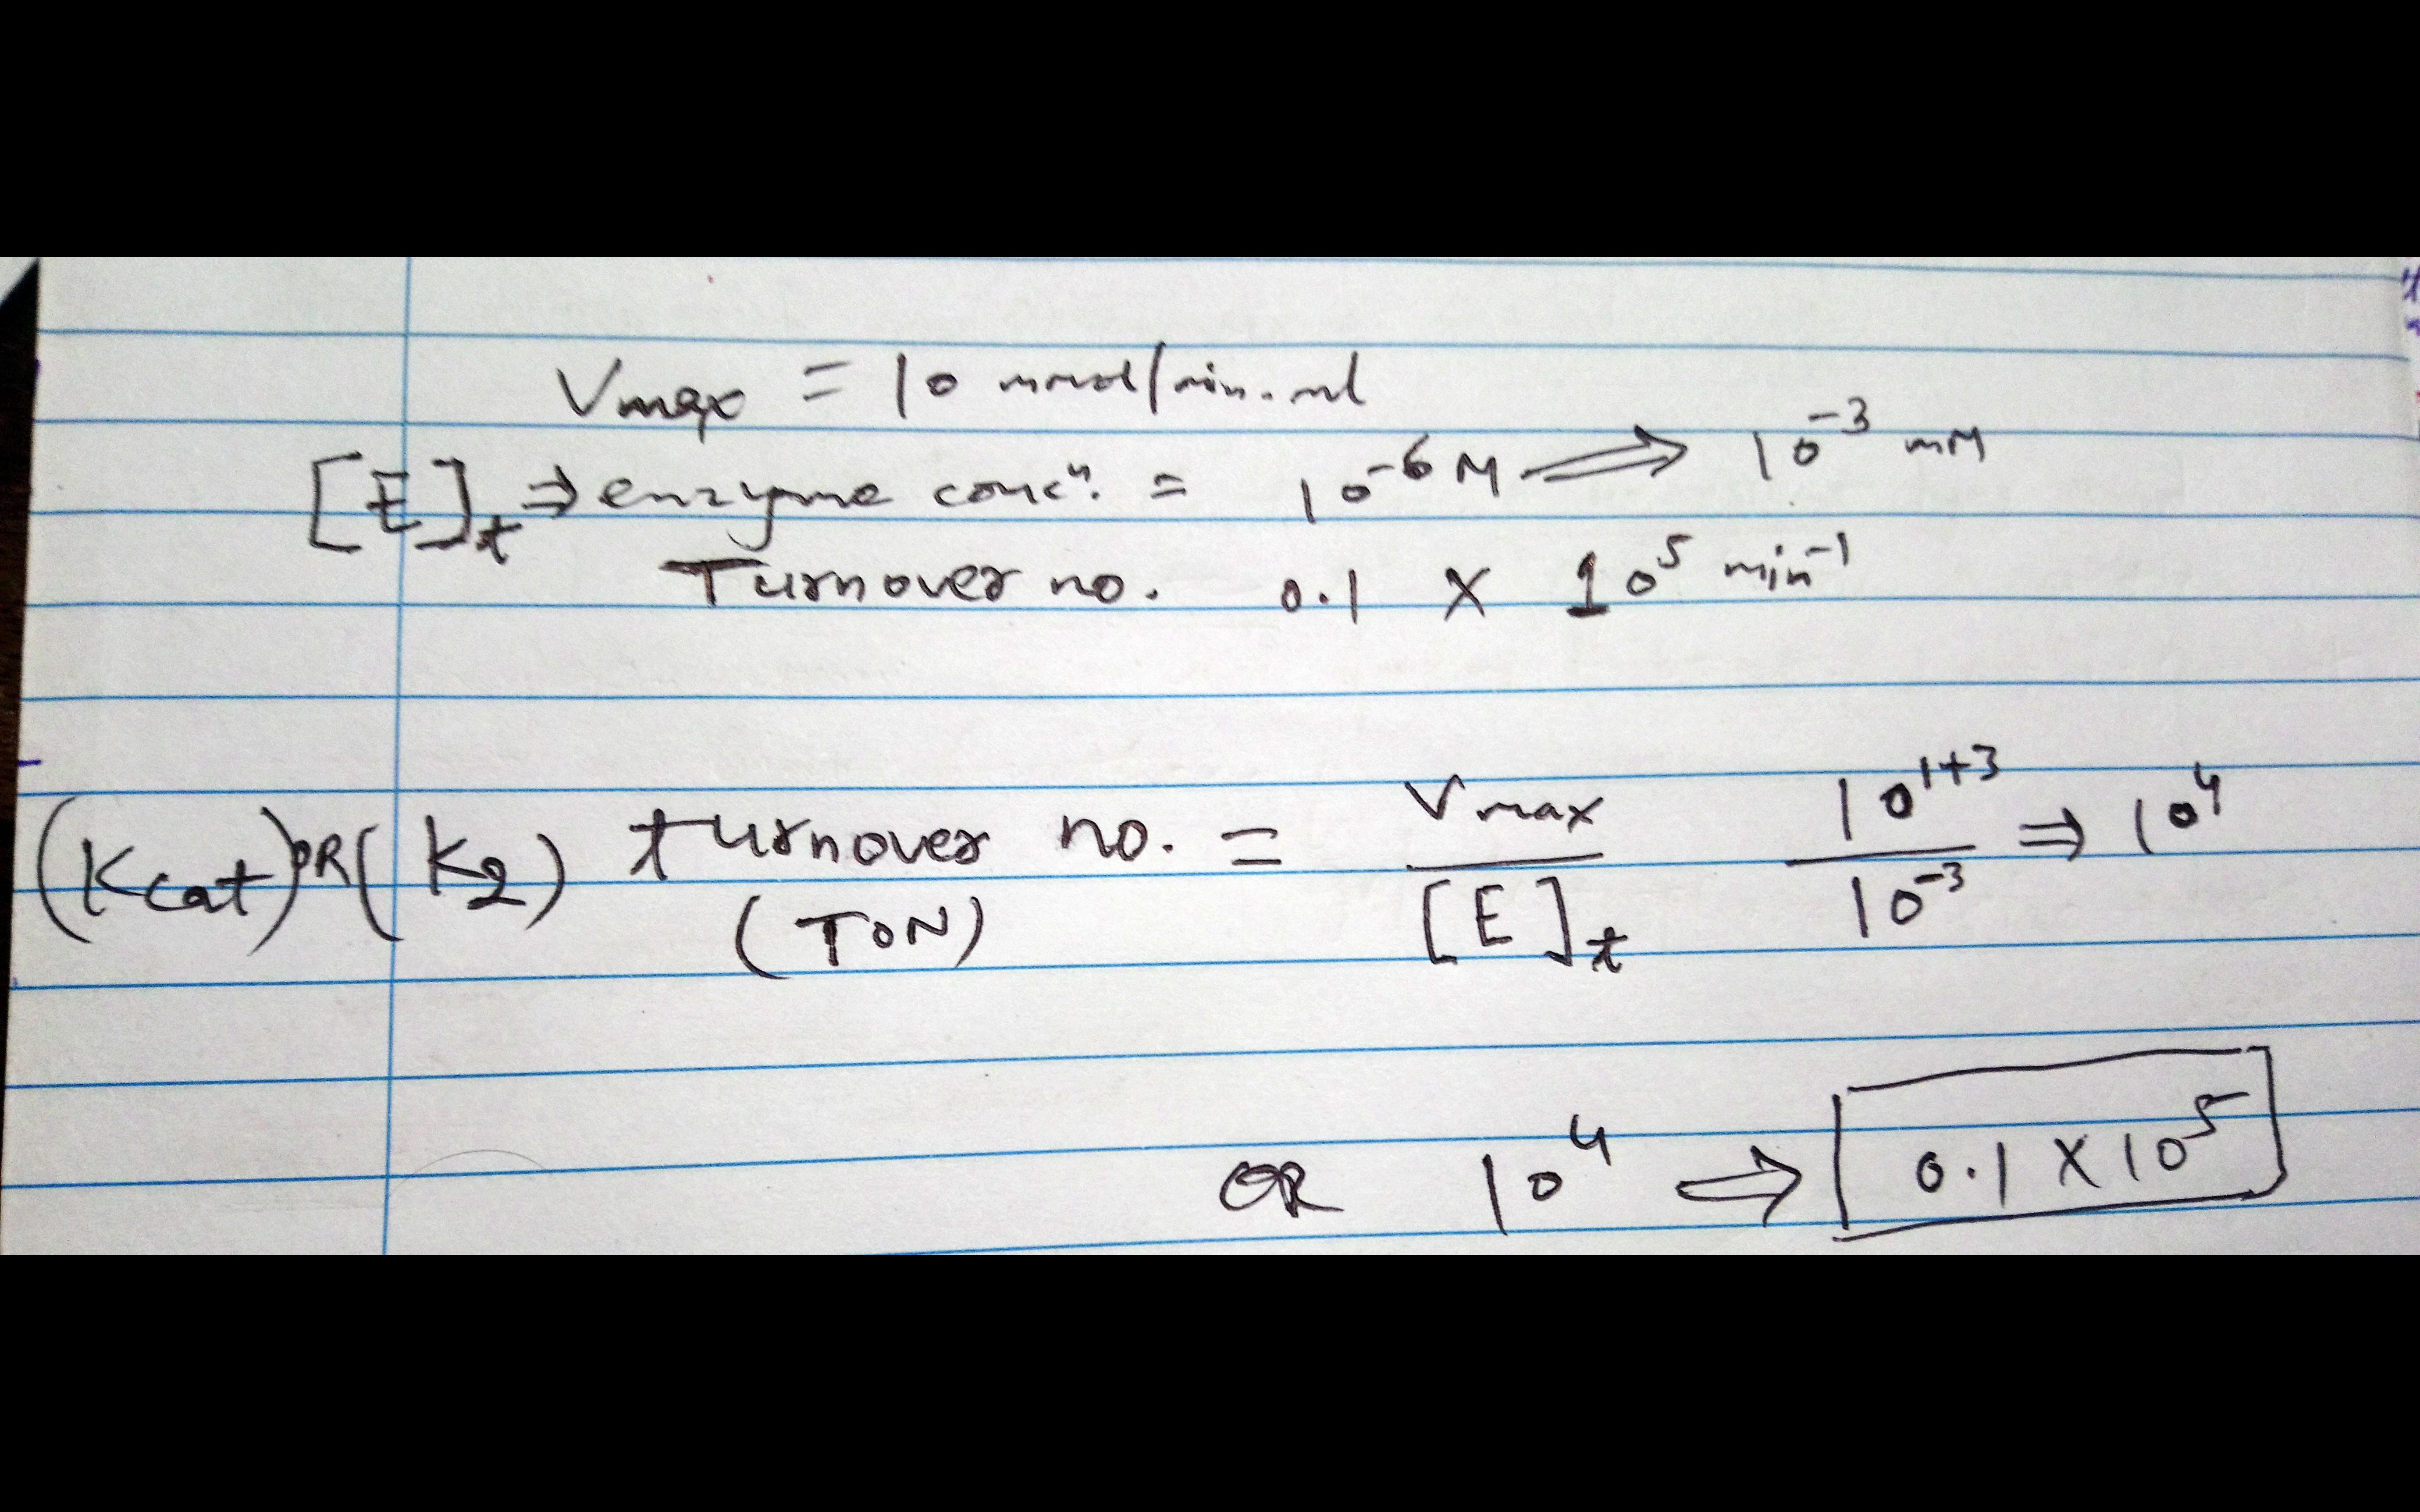 Vmax = 10 mmol/min.ml
[E]t ⇒ enzyme concⁿ. = 10⁻⁶ M ⟹ 10⁻³ mM
Turnover no. 0.1 X 10⁵ min⁻¹
(Kcat) OR (K₂) turnover no. = Vmax / [E]t 10¹⁺³ / 10⁻³ ⇒ 10⁴
(TON)
OR 10⁴ ⇒ 0.1 X 10⁵